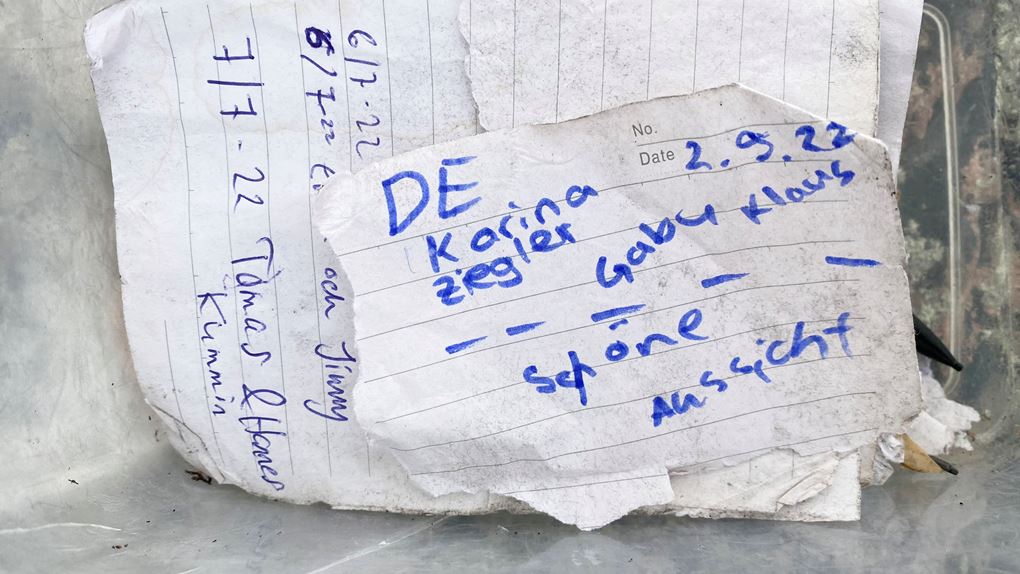 6/7-22
5/7-22
och Jinny
7/7-22 Tomas & Hannes
Kimmin
No.
Date 2.9.22
DE
Karina
Ziegler
Gabu Klaus
— — — — —
schöne
Aussicht